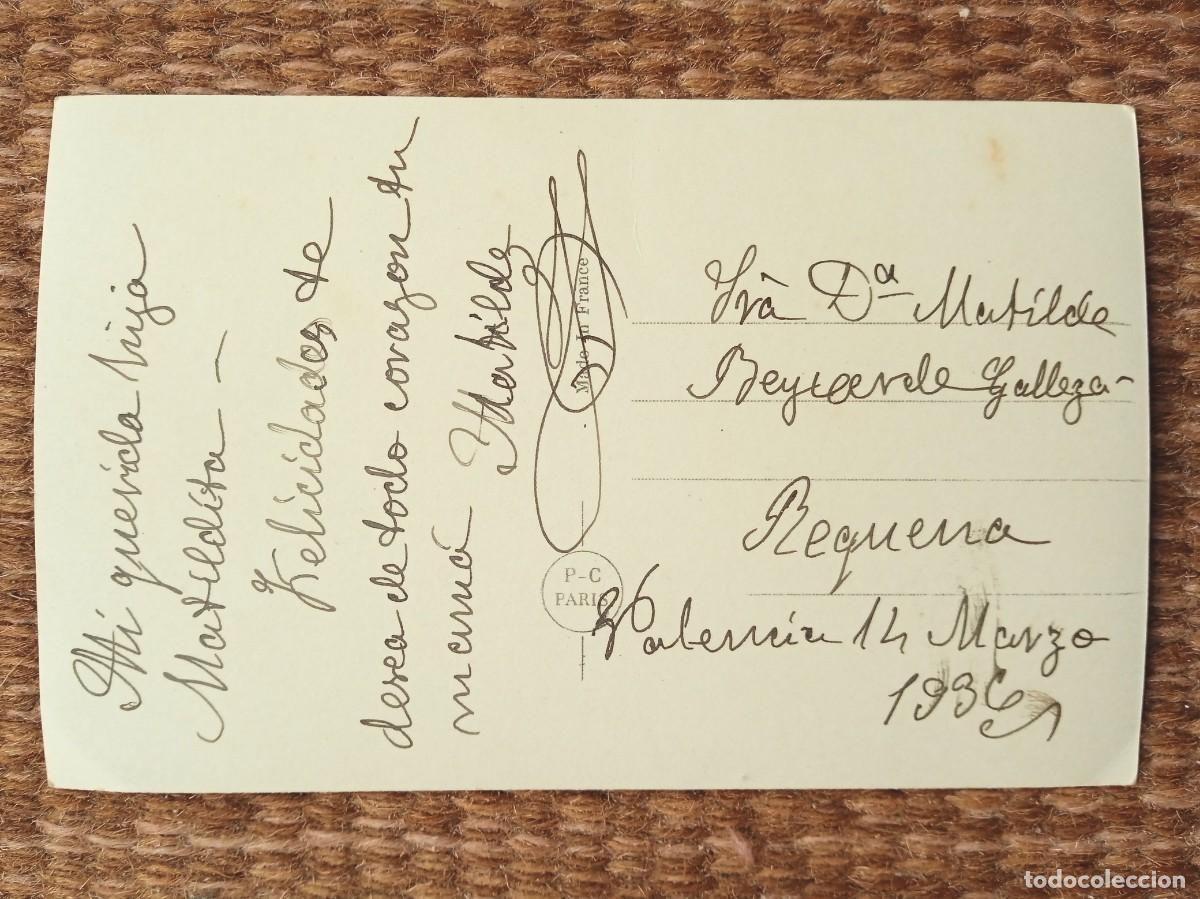 Mi querida hija
Matildita —
Felicidades te
desea de todo corazon tu
mamá Matilde
Made in France
P-C
PARIS
Srâ Dª Matilde
de Gallega-
Requena
Valencia 14 Marzo
1936
todocoleccion